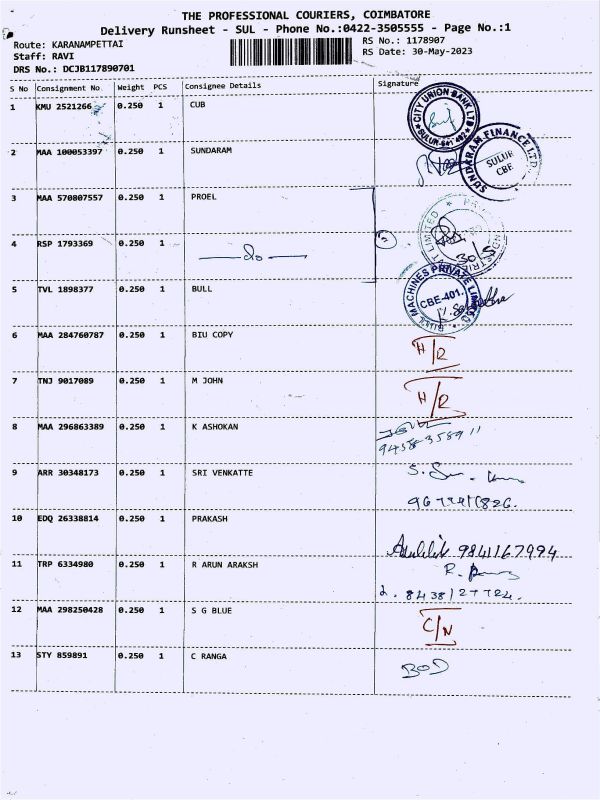 THE PROFESSIONAL COURIERS, COIMBATORE
Delivery Runsheet - SUL - Phone No.:0422-3505555 - Page No.:1
Route: KARANAMPETTAI RS No.: 1178907
Staff: RAVI RS Date: 30-May-2023
DRS No.: DCJB117890701
S No Consignment No Weight PCS Consignee Details Signature
1 KMU 2521266 0.250 1 CUB
CITY UNION BANK LTD SULUR-641 402
2 MAA 100053397 0.250 1 SUNDARAM
SUNDARAM FINANCE LTD SULUR CBE
3 MAA 570807557 0.250 1 PROEL
4 RSP 1793369 0.250 1 do
30/5
5 TVL 1898377 0.250 1 BULL
BULL MACHINES PRIVATE LIMITED CBE-401.
6 MAA 284760787 0.250 1 BIU COPY H/R
7 TNJ 9017089 0.250 1 M JOHN H/R
8 MAA 296863389 0.250 1 K ASHOKAN
9 ARR 30348173 0.250 1 SRI VENKATTE
10 EDQ 26338814 0.250 1 PRAKASH
9841167994
11 TRP 6334980 0.250 1 R ARUN ARAKSH
12 MAA 298250428 0.250 1 S G BLUE C/N
13 STY 859891 0.250 1 C RANGA BOD